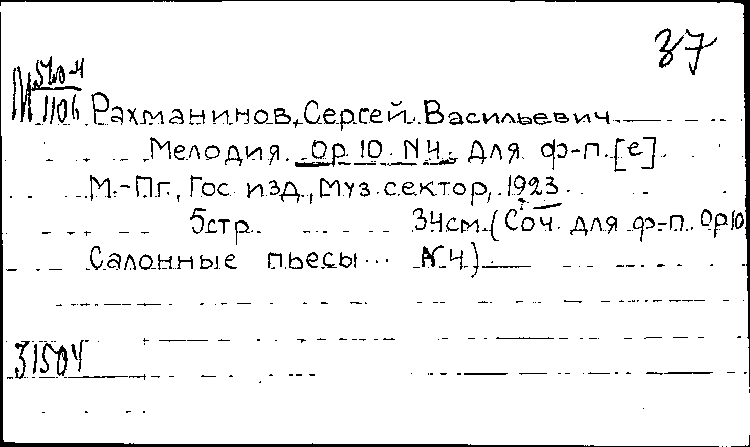 37
М 520-4
1106 Рахманинов, Сергей Васильевич
Мелодия. Op 10. N4. Для ф-п. [e]
М.-Пг., Гос изд., Муз. сектор, 1923
5стр. 34см. (Соч. для ф-п. Op 10
Салонные пьесы... N.4)
31504